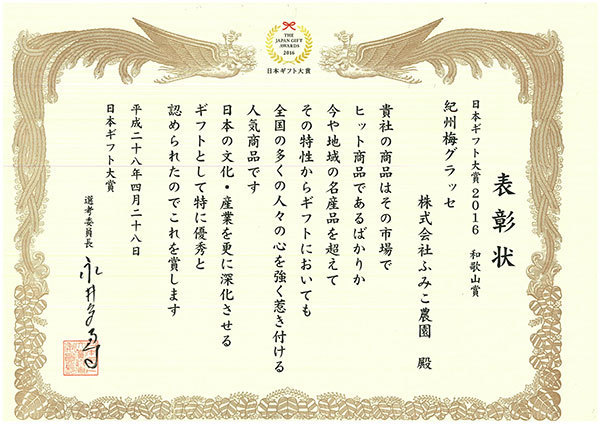 THE
JAPAN GIFT
AWARDS
2016
日本ギフト大賞
表彰状
日本ギフト大賞2016 和歌山賞
紀州梅グラッセ
株式会社ふみこ農園 殿
貴社の商品はその市場で
ヒット商品であるばかりか
今や地域の名産品を超えて
その特性からギフトにおいても
全国の多くの人々の心を強く惹き付ける
人気商品です
日本の文化・産業を更に深化させる
ギフトとして特に優秀と
認められたのでこれを賞します
平成二十八年四月二十八日
日本ギフト大賞
選考委員長